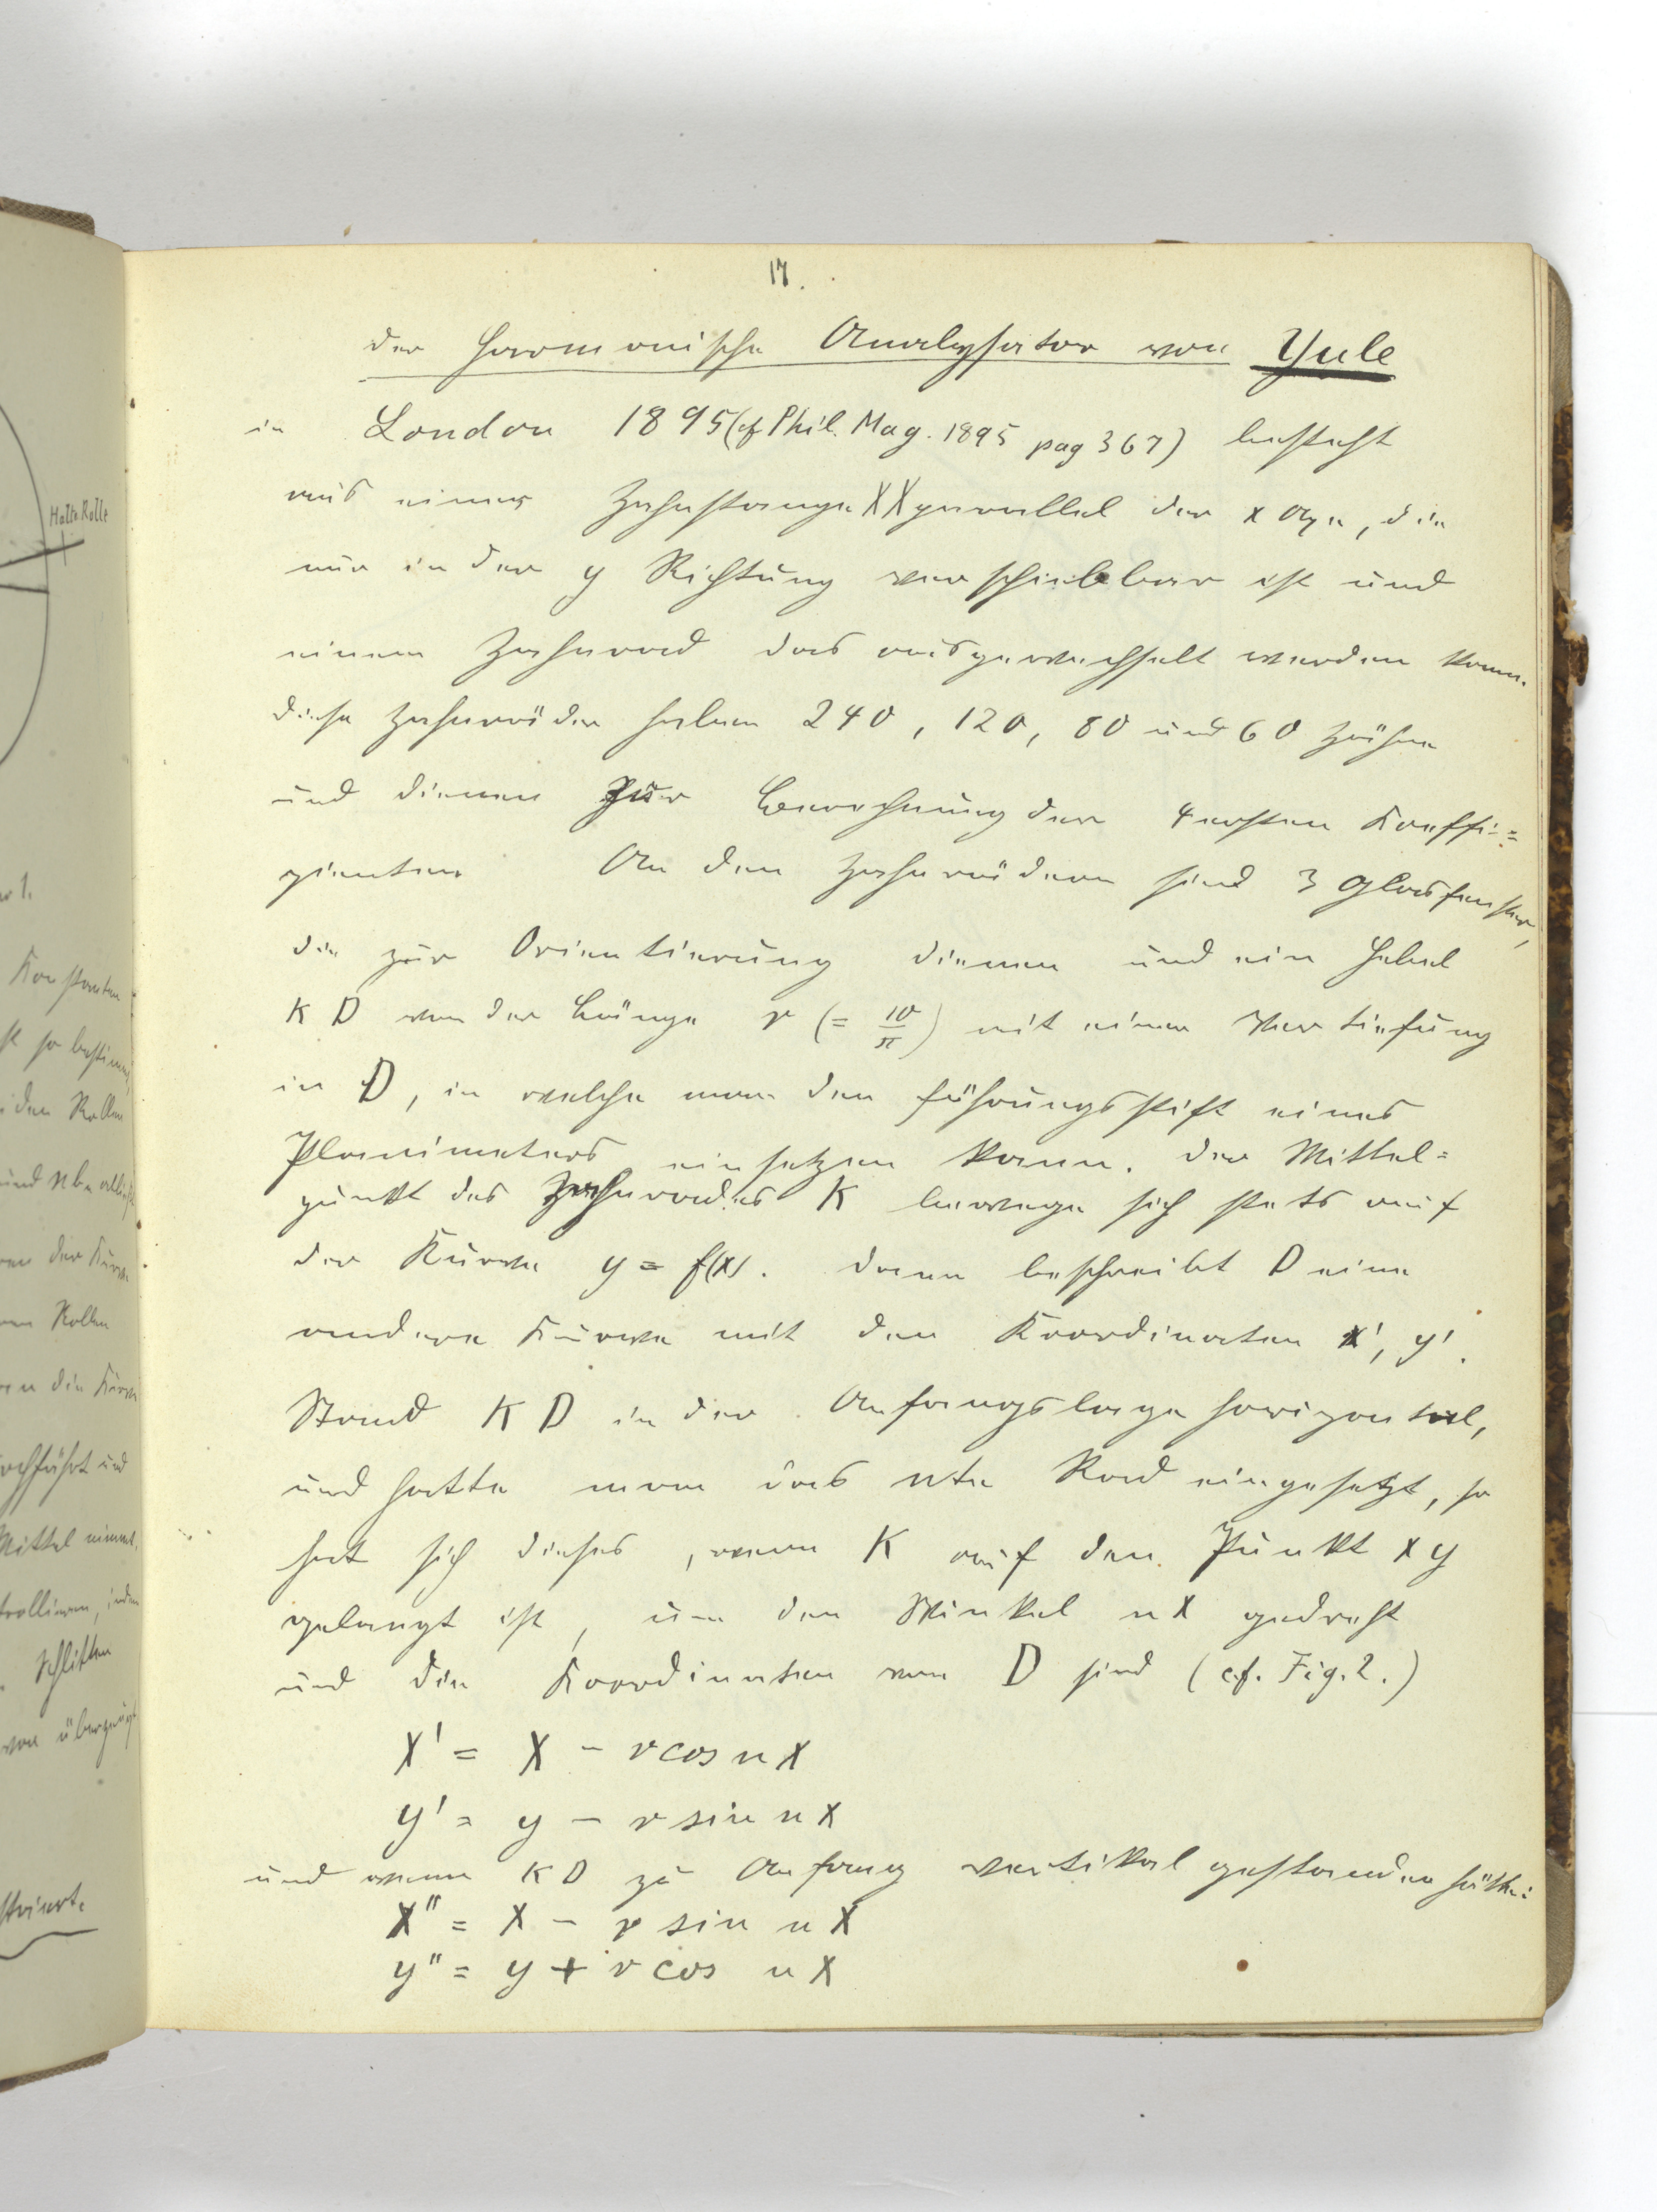 17.
der harmonische Analysator von Yule
in London 1895 (cf Phil. Mag. 1895 pag 367) besteht
aus einer Zahnstange XX parallel der x Axe, die
nur in der y Richtung verschiebbar ist und
einem Zahnrad das ausgewechselt werden kann.
diese Zahnräder haben 240, 120, 80 und 60 Zähne
und dienen zur Berechnung der 4 ersten Koeffi=
zienten. An den Zahnrädern sind 3 Glasfenster,
die zur Orientierung dienen und ein Hebel
K D von der Länge r (= 10/π) mit einer Vertiefung
in D, in welche man den Führungsstift eines
Planimeters einsetzen kann. der Mittel=
punkt des Zahnrades K bewege sich stets auf
der Kurve y = f(x). dann beschreibt D eine
andere Kurve mit den Koordinaten x', y'.
Stand K D in der Anfangslage horizontal,
und hatte man das nte Rad eingesetzt, so
hat sich dieses, wenn K auf den Punkt x y
gelangt ist, um den Winkel n x gedreht
und die Koordinaten von D sind (cf. Fig. 2.)
x' = x - r cos n x
y' = y - r sin n x
und wenn K D zu Anfang vertikal gestanden hätte:
x" = x - r sin n x
y" = y + r cos n x
Halte Rolle
Konstanten
so bestimmt
den Rollen
und
der Kurve
Rollen
die Kurve
und
Mittel nimmt.
Schlitten